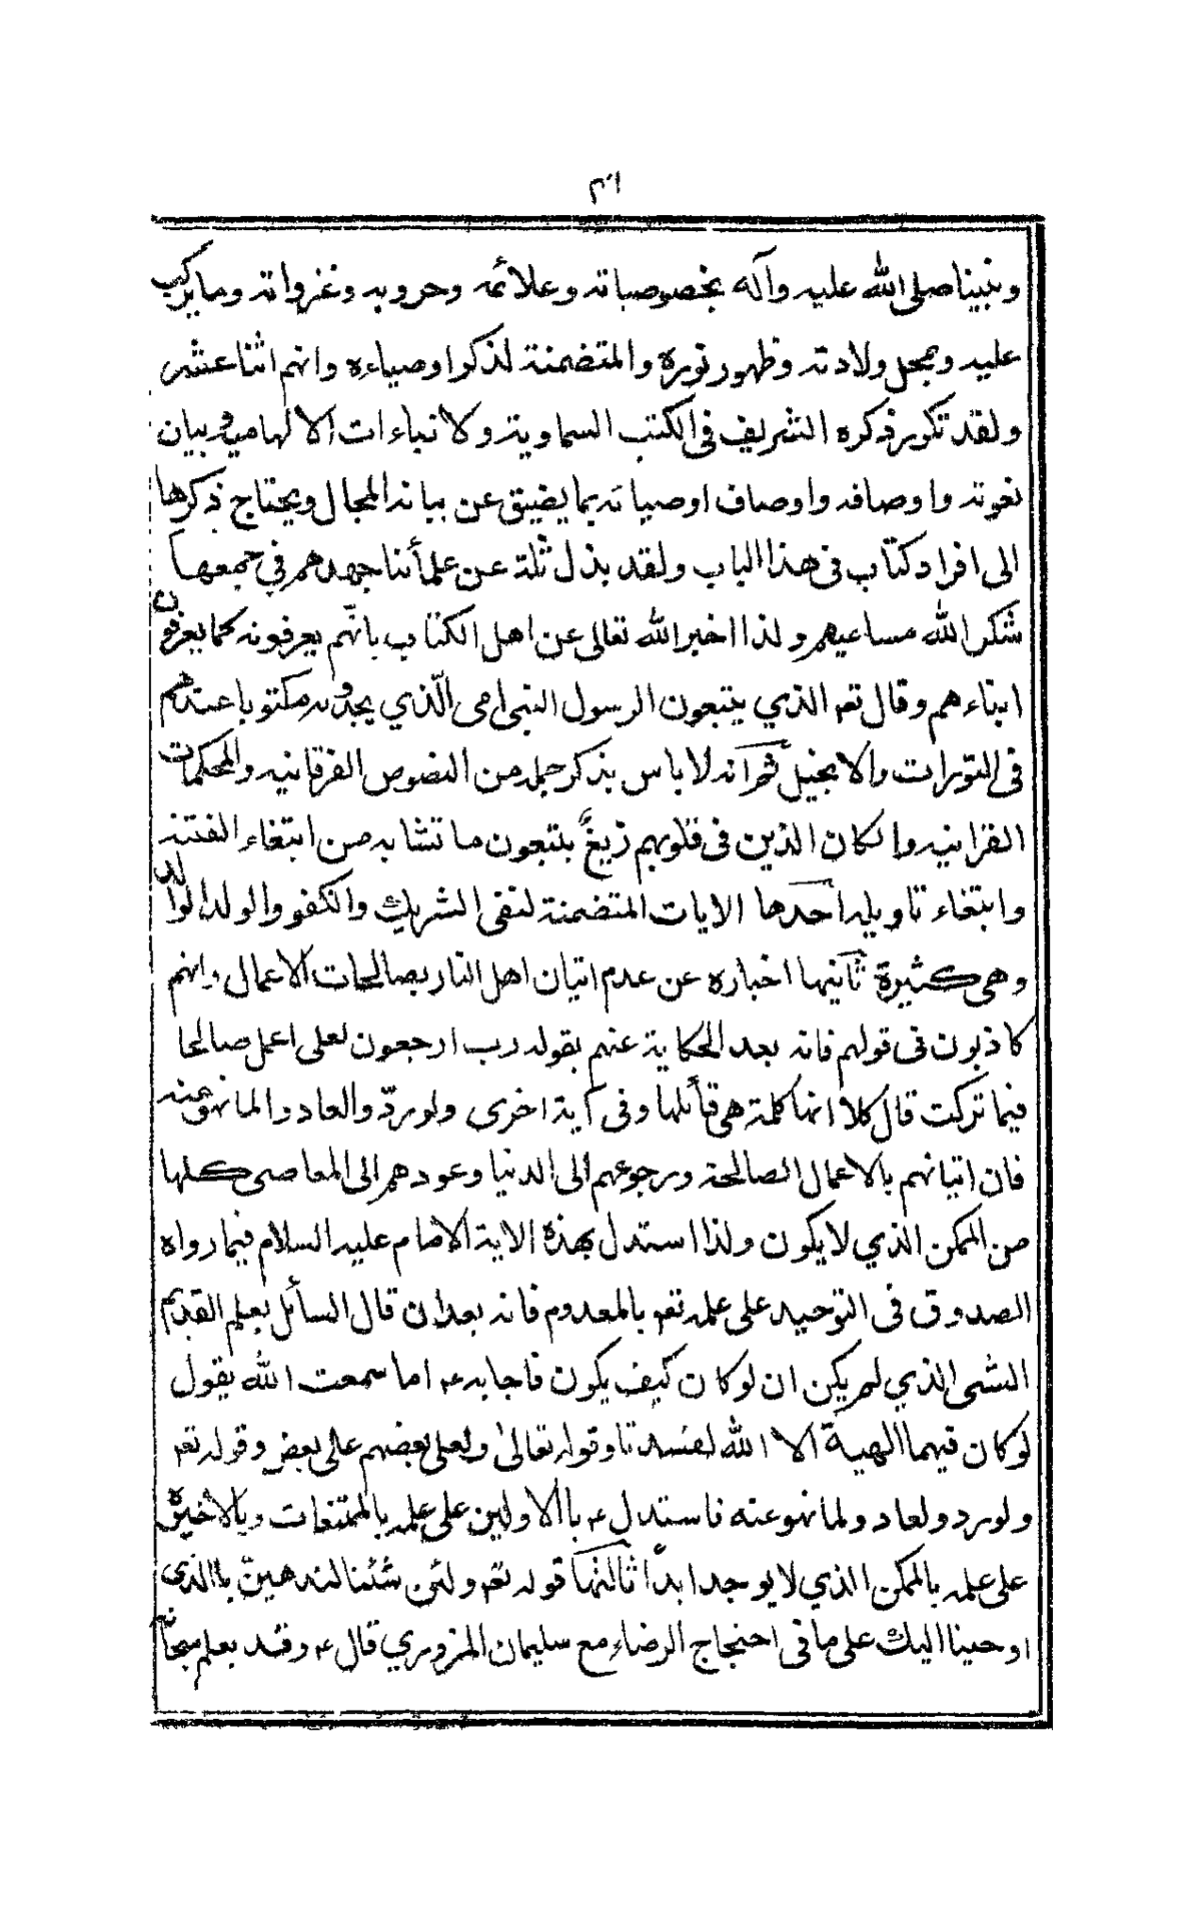 ونبينا صلى الله عليه وآله بخصوصياته وعلائمه وحروبه وغزواته وما يركب
عليه ومحل ولادته وظهور نوره والمتضمنة لذكر اوصياءه وانهم اثنا عشر
ولقد تكرر ذكره الشريف في الكتب السماوية ولانباءات الالهاميه وبيان
نعوته واوصافه واوصاف اوصيائه بما يضيق عن بيانه المجال ويحتاج ذكرها
الى افراد كتاب في هذا الباب ولقد بذل ثلة عن علمأنا جهدهم في جمعها
شكر الله مساعيهم ولذا اخبر الله تعالى عن اهل الكتاب بانهم يعرفونه كما يعرفون
ابناءهم وقال تعه الذي يتبعون الرسول النبي امي الّذي يجدونه مكتوبا عندهم
في التورات والانجيل ثم انه لاباس بذكر جمله من النصوص الفرقانيه والمحكمات
القرانيه وا لكان الذين في قلوبهم زيغٌ يتبعون ما تشابه من ابتغاء الفتنه
وابتغاء تاويله احدها الايات المتضمنة لنفى الشريك والكفو والولد الوالد
وهي كثيرة ثانيها اخباره عن عدم اتيان اهل النار بصالحات الاعمال وانهم
كاذبون في قولهم فانه بعد الحكاية عنهم بقوله رب ارجعون لعلى اعمل صالحا
فيما تركت قال كلا انها كلمة هي قأئلها وفي آية اخرى ولو ردّوالعادوالما نهو عنه
فان اتيانهم بالاعمال الصالحة ورجوعهم الى الدنيا وعودهم الى المعاصى كلها
من الممكن الذي لايكون ولذا استدل بهذه الاية الامام عليه السلام فيما رواه
الصدوق في التوحيد على علمه تعه بالمعدوم فانه بعد ان قال السأئل يعلم القديم
الشى الذي لم يكن ان لو كان كيف يكون فاجابه ع اما سمعت الله يقول
لوكان فيهما الهية الا الله لفسدتا وقوله تعالى ولعلى بعضهم على بعض وقوله تعه
ولو ردو لعادو لما نهو عنه فاستدل ع باالاولين على علمه بالممتنعات وبالاخيرة
على علمه بالممكن الذي لايوجد ابداً ثالثها قوله تعه ولئن شئنا لنذهبنّ باالذى
اوحينا اليك على ما في احنجاج الرضاء مع سليمان المزوري قال ع وقد يعلم